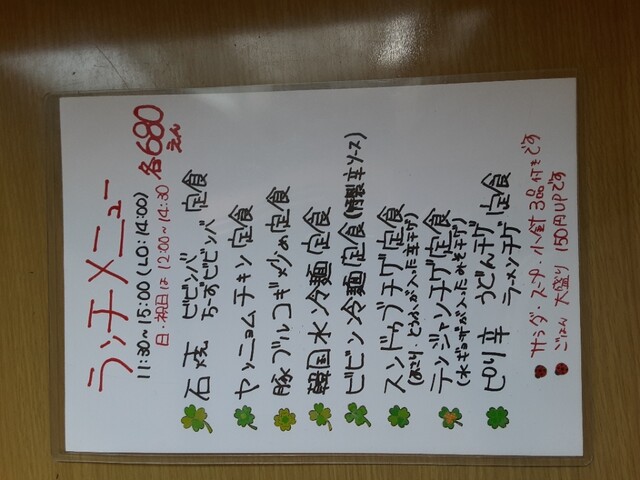 ランチメニュー
11:30~15:00(LO:14:00)
日・祝日は 12:00~14:30
各680えん
石焼 ビビンバ 定食
ちーずビビンバ
ヤンニョムチキン定食
豚プルコギ炒め定食
韓国水冷麺定食
ビビン冷麺定食(特製辛ソース)
スンドゥブチゲ定食
(あさり・とうふが入った辛チゲ)
テンジャンチゲ定食
(水ギョーザが入ったみそチゲ)
ピリ辛 うどんチゲ 定食
ラーメンチゲ
サラダ・スープ・小針 3品付きです
ごはん 大盛り 150円UPです